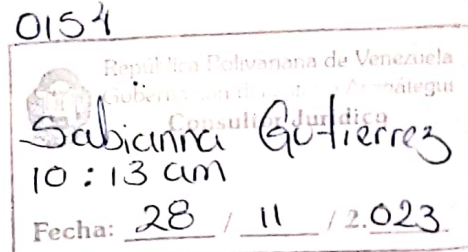 0154
República Bolivariana de Venezuela
Gobernación del Estado Anzoátegui
Consultoría Jurídica
Sabianna Gutierrez
10:13 am
Fecha: 28 / 11 / 2.023